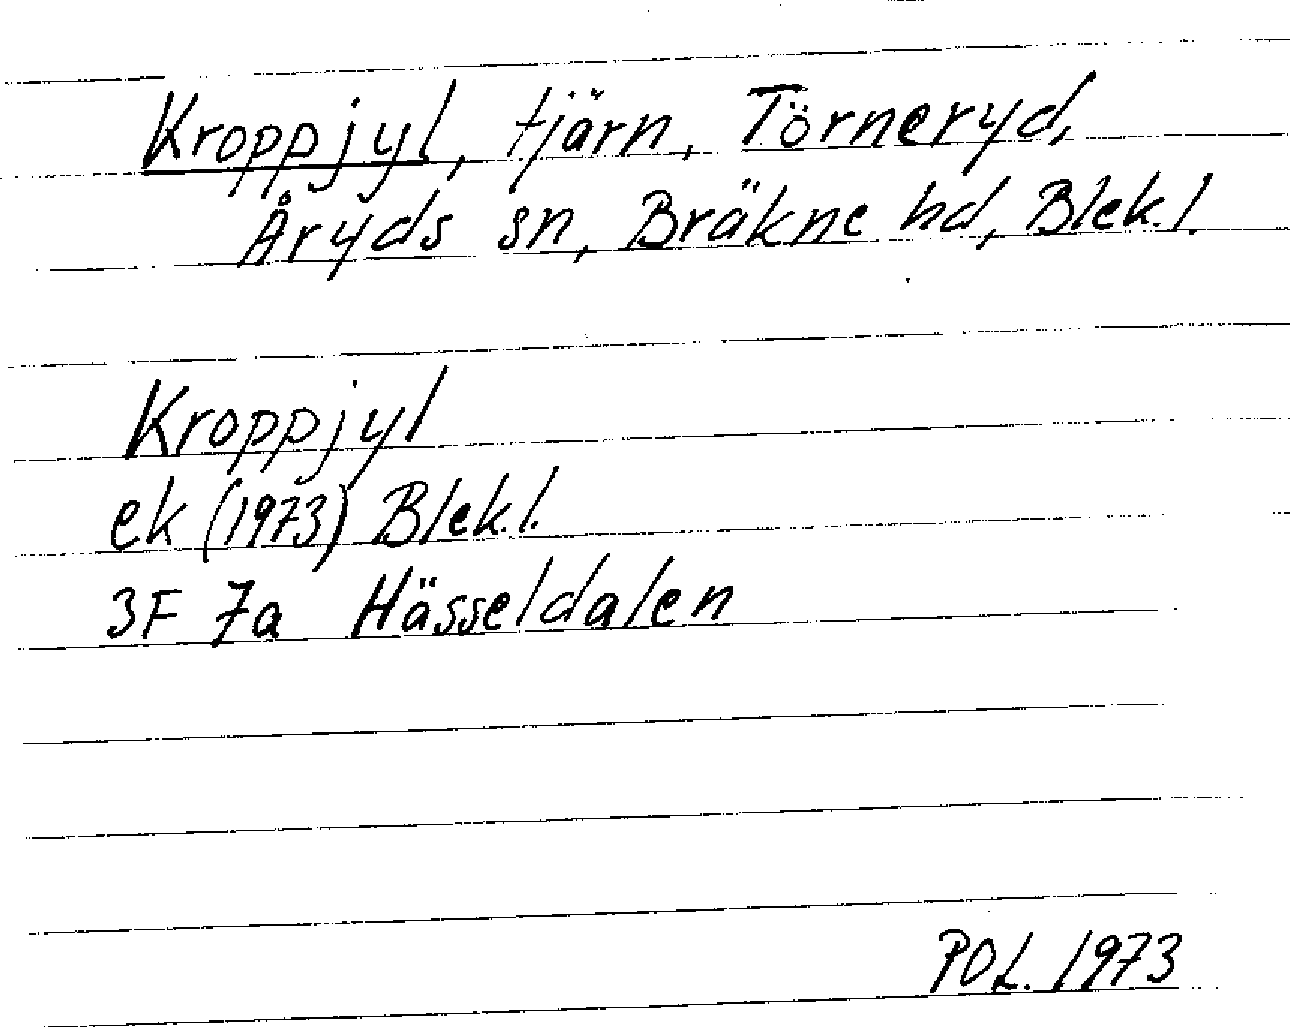 Kroppjyl, tjärn, Törneryd,
Åryds sn, Bräkne hd, Blek.l.
Kroppjyl
ek (1973) Blek.l.
3F 7a Hässeldalen
POL. 1973